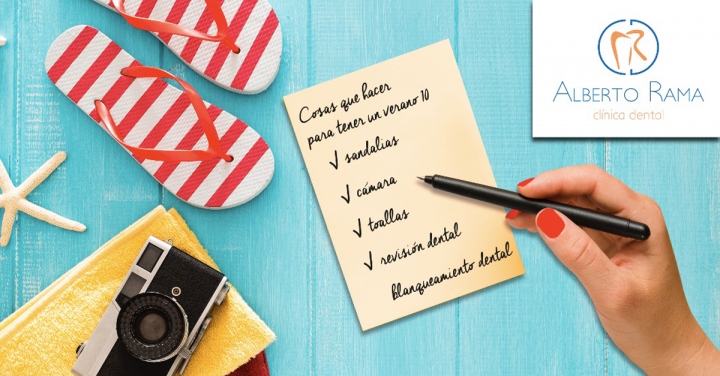 Cosas que hacer
para tener un verano 10
sandalias
cámara
toallas
revisión dental
Blanqueamiento dental
ALBERTO RAMA
clínica dental